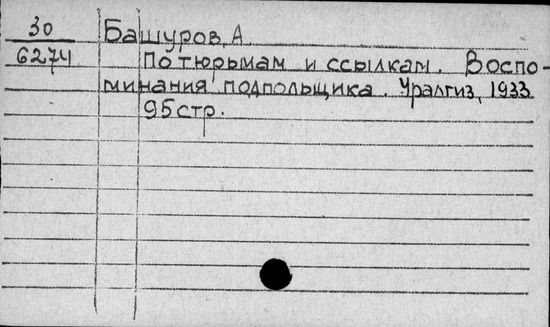 30 Башуров, А.
6274 По тюрьмам и ссылкам. Воспо-
минания подпольщика. Уралгиз, 1933
95 стр.